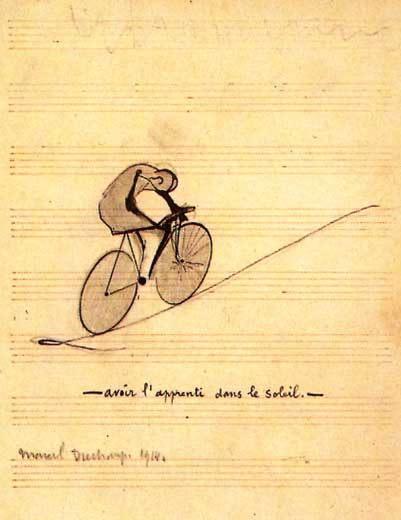 — avoir l'apprenti dans le soleil. —
Marcel Duchamp. 1914.